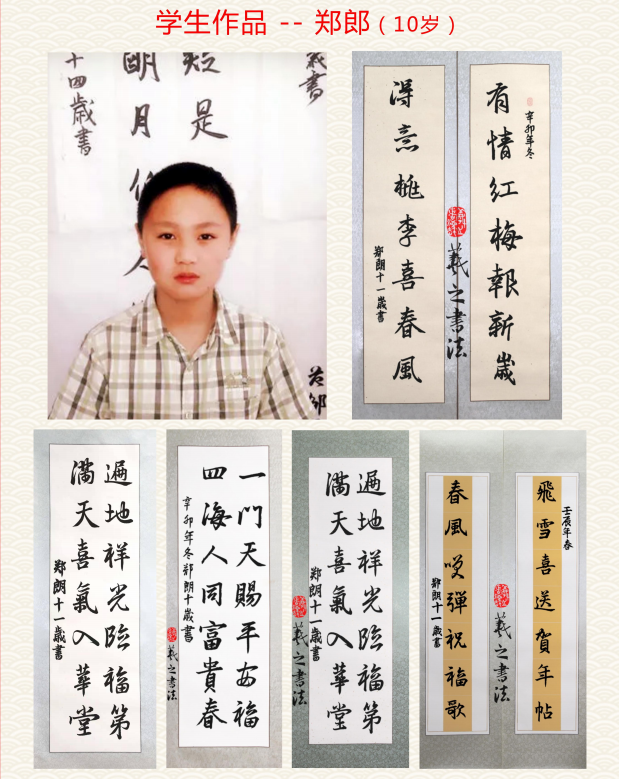 学生作品 -- 郑郎（10岁）
是
明月
十四歲書
辛卯年冬
有情红梅報新歲
得意桃李喜春風
郑朗十一歲書
羲之書法
遍地祥光临福第
滿天喜氣入華堂
郑朗十一歲書
一门天賜平安福
四海人同富貴春
辛卯年冬郑朗十歲書
羲之書法
遍地祥光临福第
滿天喜氣入華堂
郑朗十一歲書
羲之書法
壬辰年春
飛雪喜送賀年帖
春風咲彈祝福歌
郑朗十一歲書
羲之書法